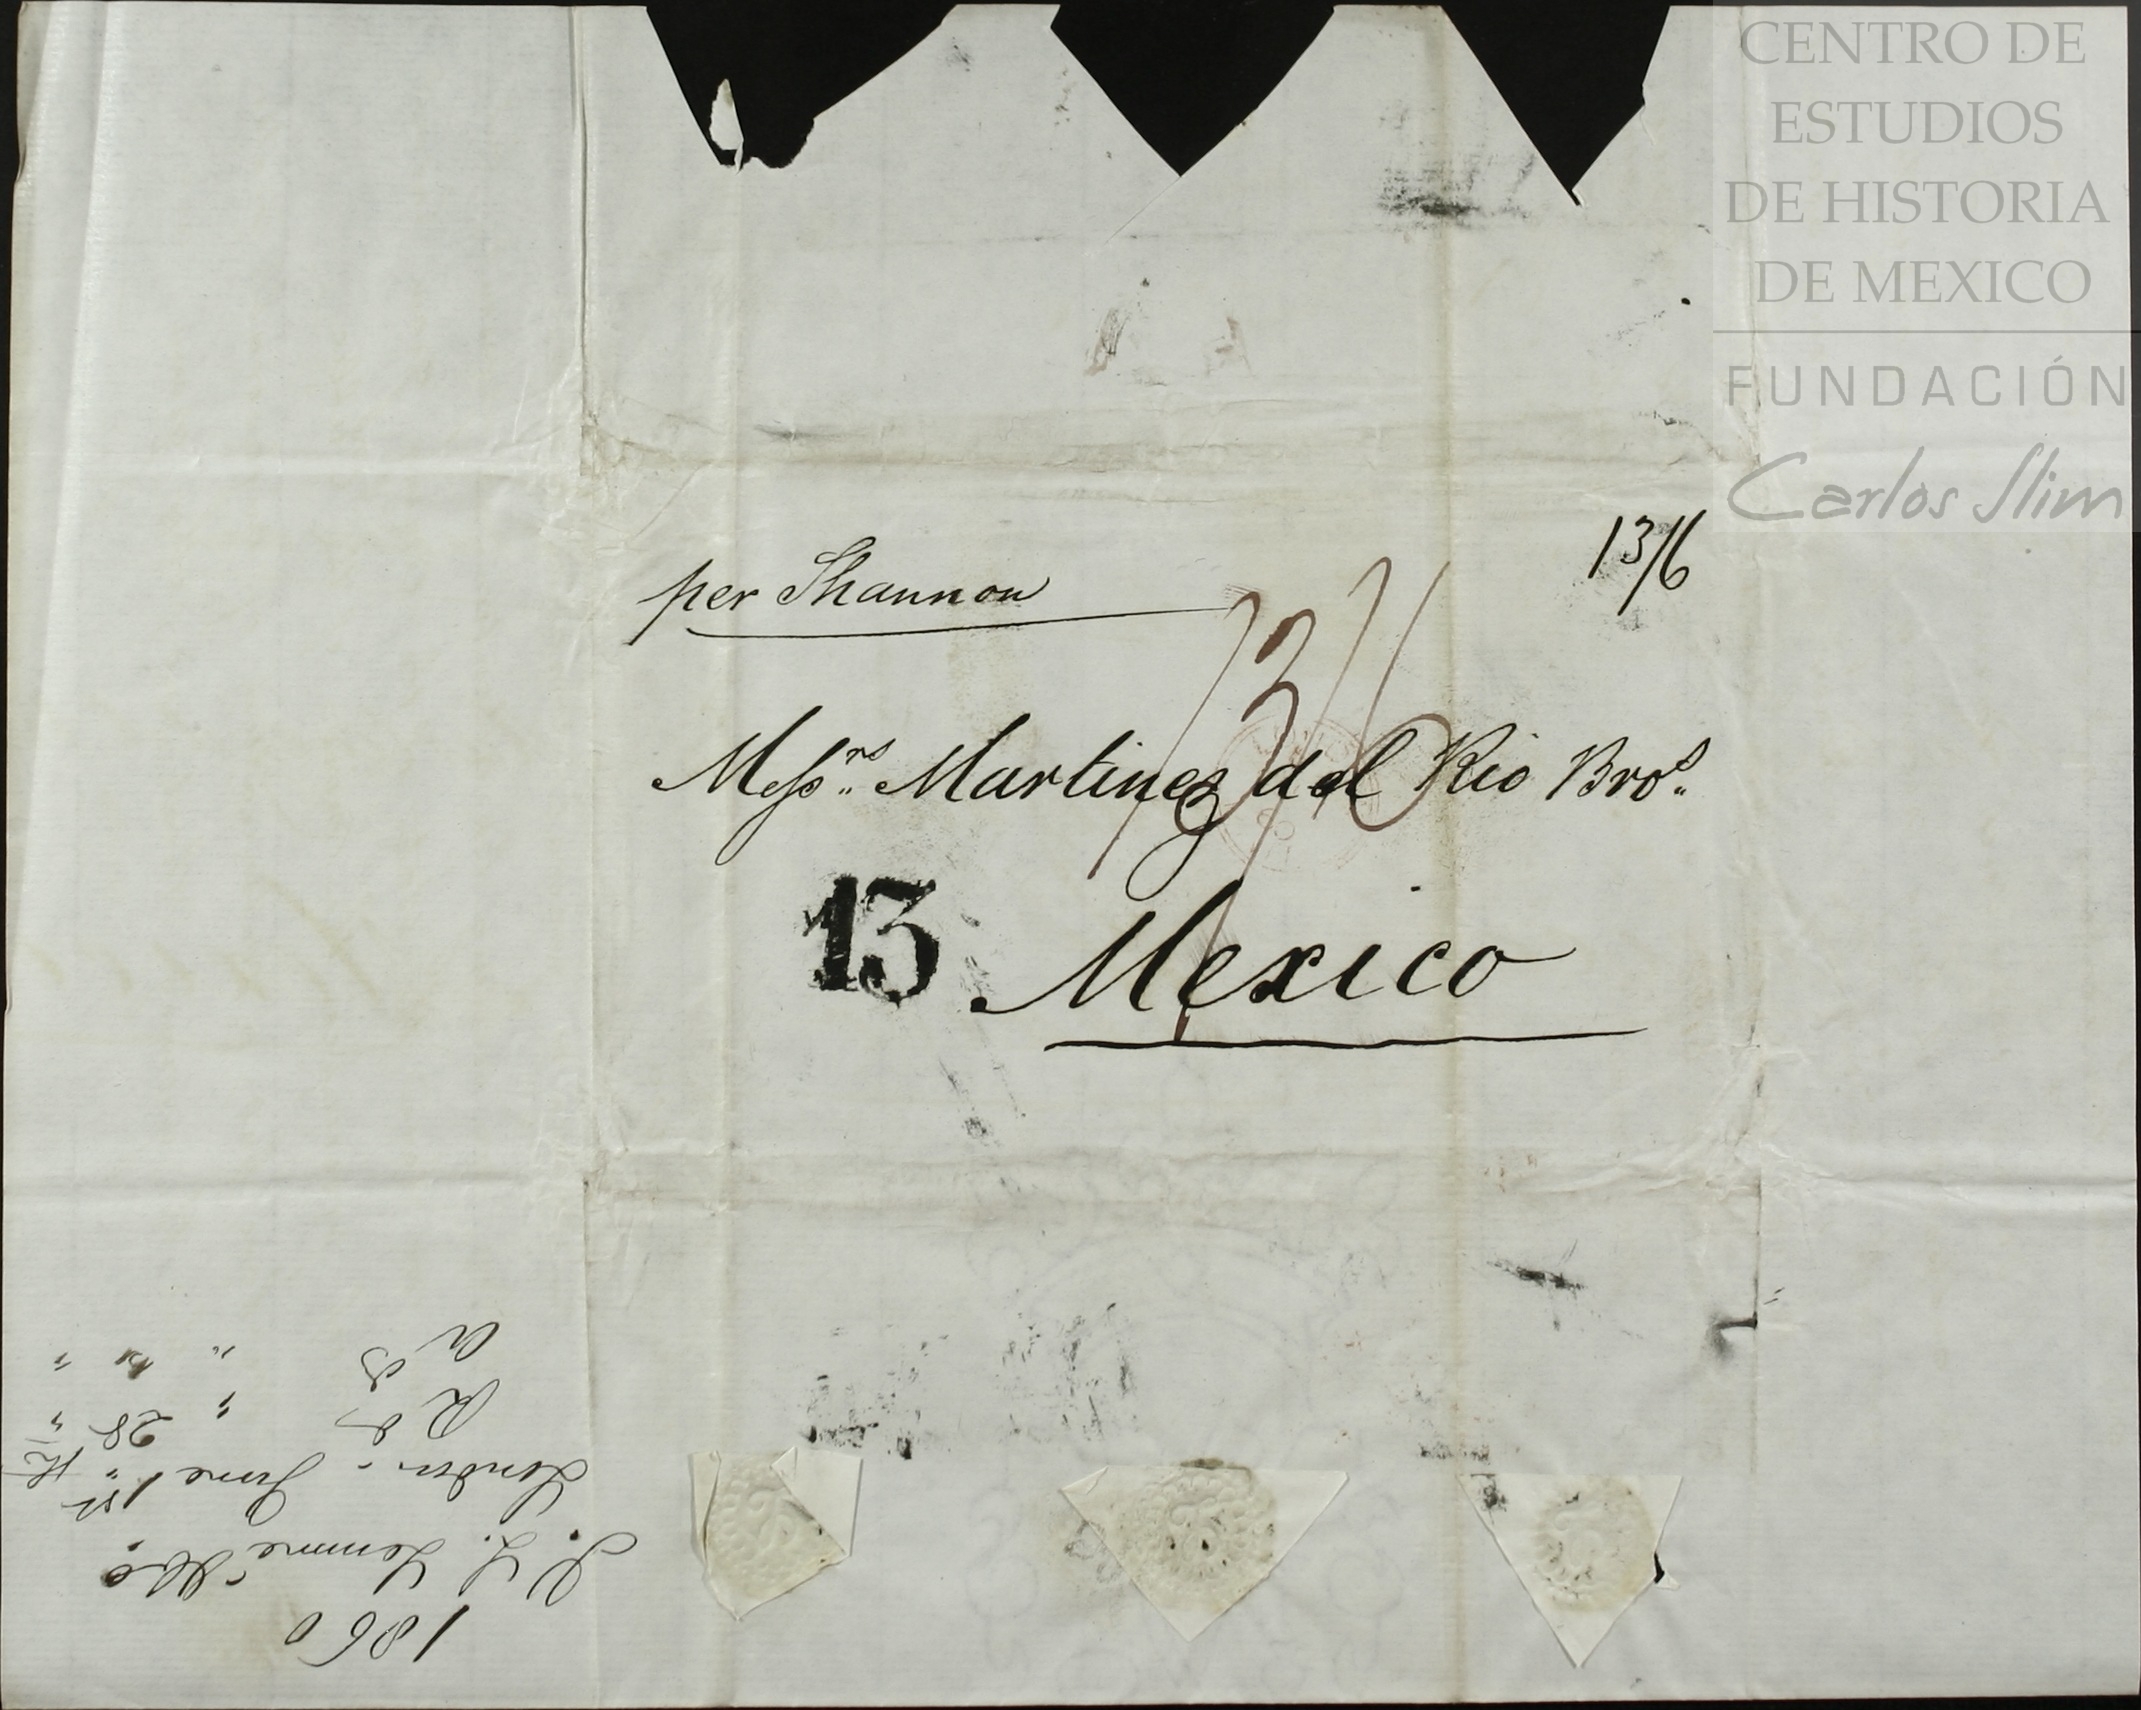 CENTRO DE
ESTUDIOS
DE HISTORIA
DE MEXICO
FUNDACIÓN
Carlos Slim
13/6
per Shannon
13/6
Messrs. Martinez del Rio Bros.
13
Mexico
1860
London June 1st
R 28 "